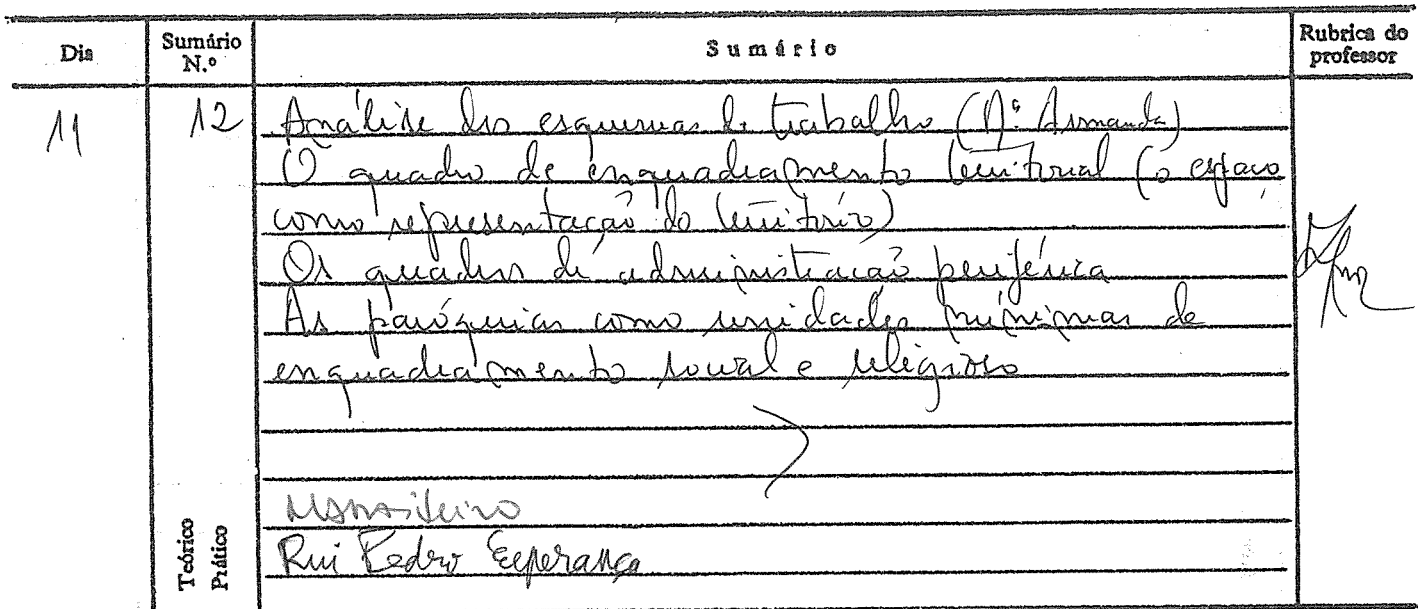 Dia
Sumário N.º
Sumário
Rubrica do professor
11
12
Análise dos esquemas de trabalho (Mª Armanda)
O quadro de enquadramento territorial (o espaço
como representação do território)
Os quadros de administração periférica
As paróquias como unidades mínimas de
enquadramento social e religioso
Teórico
Prático
Rui Pedro Esperança